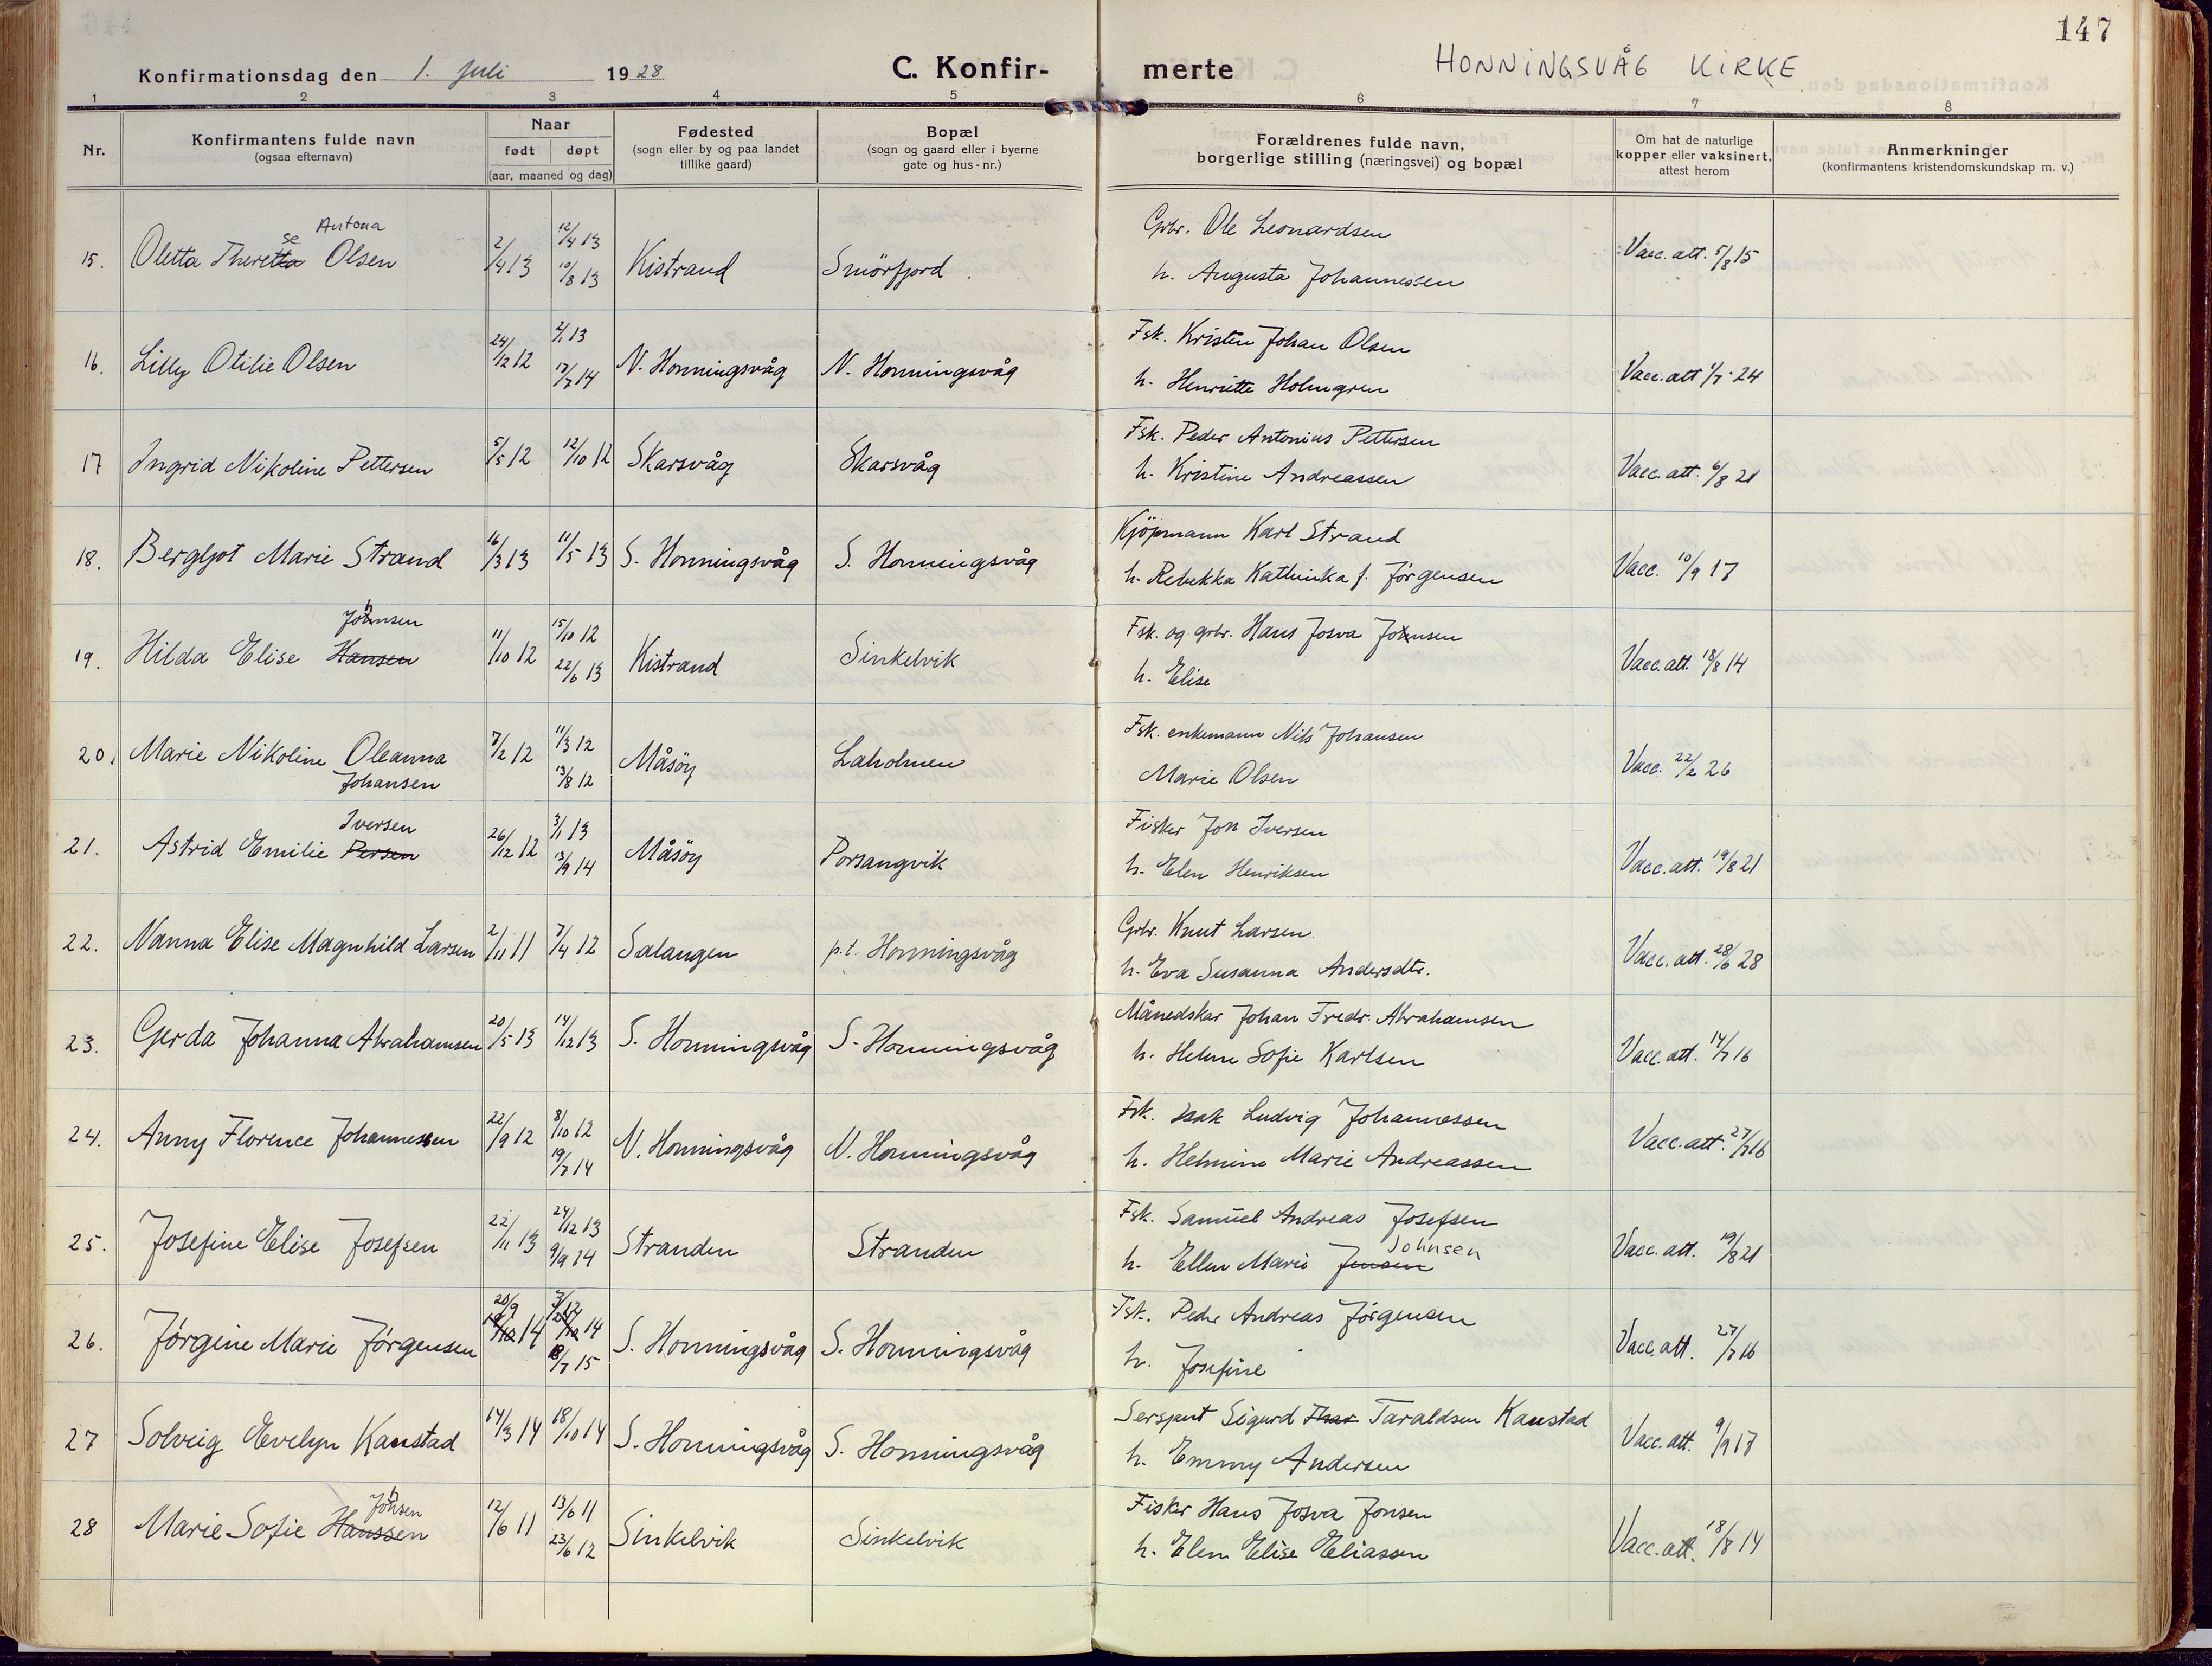 147
Konfirmationsdag den 1. juli 1928 C. Konfirmerte HONNINGSVÅG KIRKE
1 2 3 4 5 6 7 8
Nr.
Konfirmantens fulde navn
(ogsaa efternavn)
Naar
født døpt
(aar, maaned og dag)
Fødested
(sogn eller by og paa landet
tillike gaard)
Bopæl
(sogn og gaard eller i byerne
gate og hus-nr.)
Forældrenes fulde navn,
borgerlige stilling (næringsvei) og bopæl
Om hat de naturlige
kopper eller vaksinert,
attest herom
Anmerkninger
(konfirmantens kristendomskundskap m. v.)
Antona
se
15. Oletta Theretta Olsen 2/4 13 12/4 13 10/8 13 Kistrand Smörfjord. Grbr. Ole Leonardsen
h. Augusta Johannessen Vacc. att. 5/8 15
16. Lilly Otilie Olsen 24/12 12 2/1 13 17/7 14 N. Honningsvåg N. Honningsvåg Fsk. Kristen Johan Olsen
h. Henriette Holmgren Vacc. att 1/7 24
17 Ingrid Nikoline Pettersen 5/5 12 12/10 12 Skarsvåg Skarsvåg Fsk. Peder Antonius Pettersen
h. Kristine Andreassen Vacc. att. 6/8 21
18. Bergljot Marie Strand 16/3 13 11/5 13 S. Honningsvåg S. Honningsvåg Kjöpmann Karl Strand
h. Rebekka Kathinka f. Jørgensen Vacc. 10/9 17
Johnsen
19. Hilda Elise Hansen 11/10 12 15/10 12 22/6 13 Kistrand Sinkelvik Fsk. og grbr. Hans Josva Johnsen
h. Elise Vacc. att. 18/8 14
20. Marie Nikoline Oleanna
Johansen 7/2 12 11/3 12 13/8 12 Måsöy Laholmen Fsk. enkemann Nils Johansen
Marie Olsen Vacc. 22/2 26
Iversen
21. Astrid Emilie Persen 26/12 12 3/1 13 13/9 14 Måsöy Porsangvik Fisker Jon Iversen
h. Elen Henriksen Vacc. att. 19/8 21
22. Nanna Elise Magnhild Larsen 2/11 11 7/4 12 Salangen p.t. Honningsvåg Grbr. Knut Larsen
h. Eva Susanna Andersdtr. Vacc. att. 28/6 28
23. Gerda Johanna Abrahamsen 20/5 13 14/12 13 S. Honningsvåg S. Honningsvåg Månedskar Johan Fredr. Abrahamsen
h. Helene Sofie Karlsen Vacc. att. 14/7 16
24. Anny Florence Johannessen 22/9 12 8/10 12 19/7 14 N. Honningsvåg N. Honningsvåg Fsk. Isak Ludvig Johannessen
h. Helmine Marie Andreassen Vacc. att. 27/7 16
25. Josefine Elise Josefsen 22/11 13 24/12 13 9/9 14 Stranden Stranden Fsk. Samuel Andreas Josefsen
Johnsen
h. Ellen Marie Jensen Vacc. att. 19/8 21
26. Jørgine Marie Jørgensen 20/9 14 14 18/7 15 S. Honningsvåg S. Honningsvåg Fsk. Peder Andreas Jørgensen
h. Josefine Vacc. att. 27/7 16
27 Solveig Evelyn Kanstad 14/3 14 18/10 14 S. Honningsvåg S. Honningsvåg Sersjant Sigurd Thar Taraldsen Kanstad
h. Emmy Andersen Vacc. att. 9/9 17
Johnsen
28 Marie Sofie Hanssen 12/6 11 13/6 11 23/6 12 Sinkelvik Sinkelvik Fisker Hans Josva Jonsen
h. Elen Elise Eliassen Vacc. att. 18/8 14